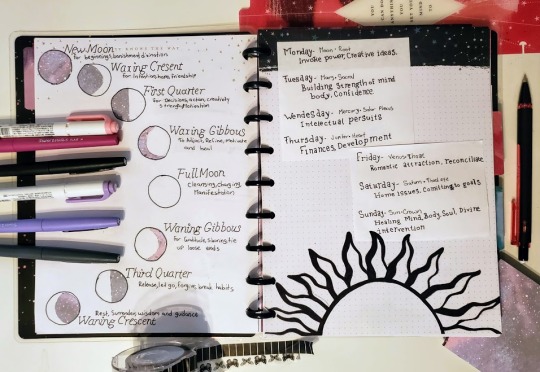 New Moon
for beginnings, banishment
Waxing Cresent
for Intention, hope, friendship
First Quarter
for Decisions, action, creativity
Strength, Motivation
Waxing Gibbous
To Adjust, Refine, Motivate
and heal
Full Moon
Cleansing, charging
Manifestation
Waning Gibbous
for Gratitude, sharing, tie
up loose ends
Third Quarter
Release, let go, forgive, break habits
Rest, Surrender, wisdom and guidance
Waning Crescent
Monday- Moon • Root
Invoke power, Creative ideas,
Tuesday- Mars • Sacral
Building Strength of mind
body, Confidence
Wendesday- Mercury • Solar Plexus
Intelectual persuits
Thursday- Jupiter • Heart
Finances, Development
Friday- Venus • Throat
Romantic attraction, Reconciliation
Saturday- Saturn • Third eye
Home issues, Comitting to goals
Sunday- Sun • Crown
Healing Mind, Body, Soul, Divine
intervention